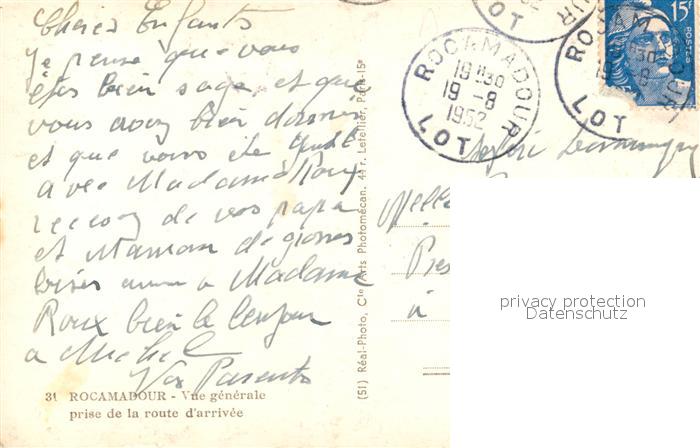 Cheres Enfants
Je pense que vous
étes bien sage et que
vous avez bien dormi
et que vous éte
avec Madame Roux
recevez de vos papa
et Maman de grosses
bises a Madame
Roux bien le bonjour
a Michel
Vos Parents
31 ROCAMADOUR - Vue générale
prise de la route d'arrivée
(51) Réal-Photo, Cie Arts Photomécan. 44 r. Letellier, Paris-15e
LOT
ROCAMADOUR
19 H30
19-8
1952
LOT
ROCAMADOUR
H30
19-8
LOT
15F
POSTES
Melle
à
privacy protection
Datenschutz